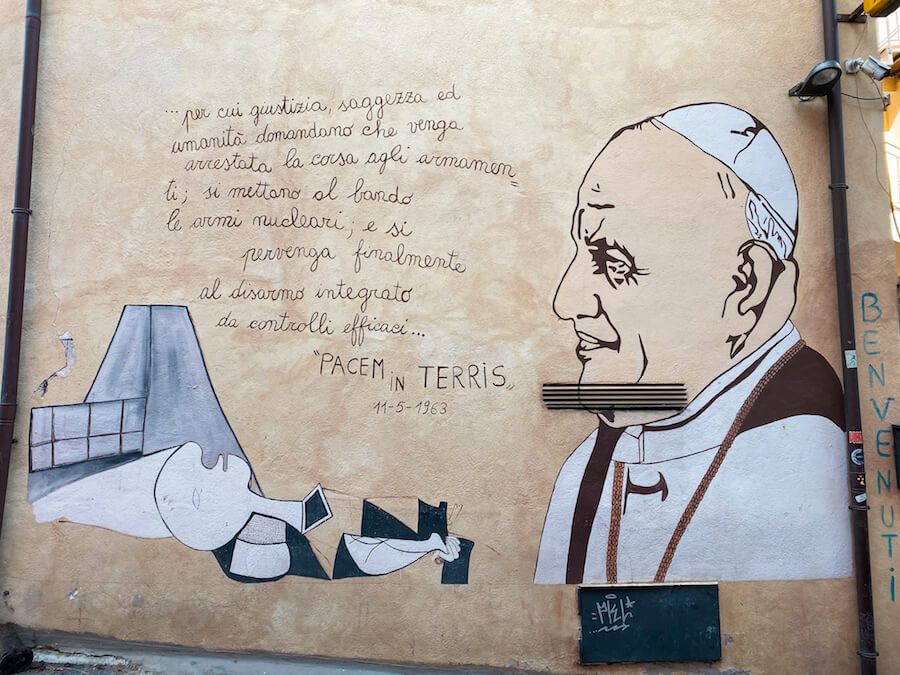 ... per cui giustizia, saggezza ed
umanità domandano che venga
arrestata la corsa agli armamen=
ti; si mettano al bando
le armi nucleari; e si
pervenga finalmente
al disarmo integrato
da controlli efficaci...
"PACEM in TERRIS"
11-5-1963
BENVENUTi